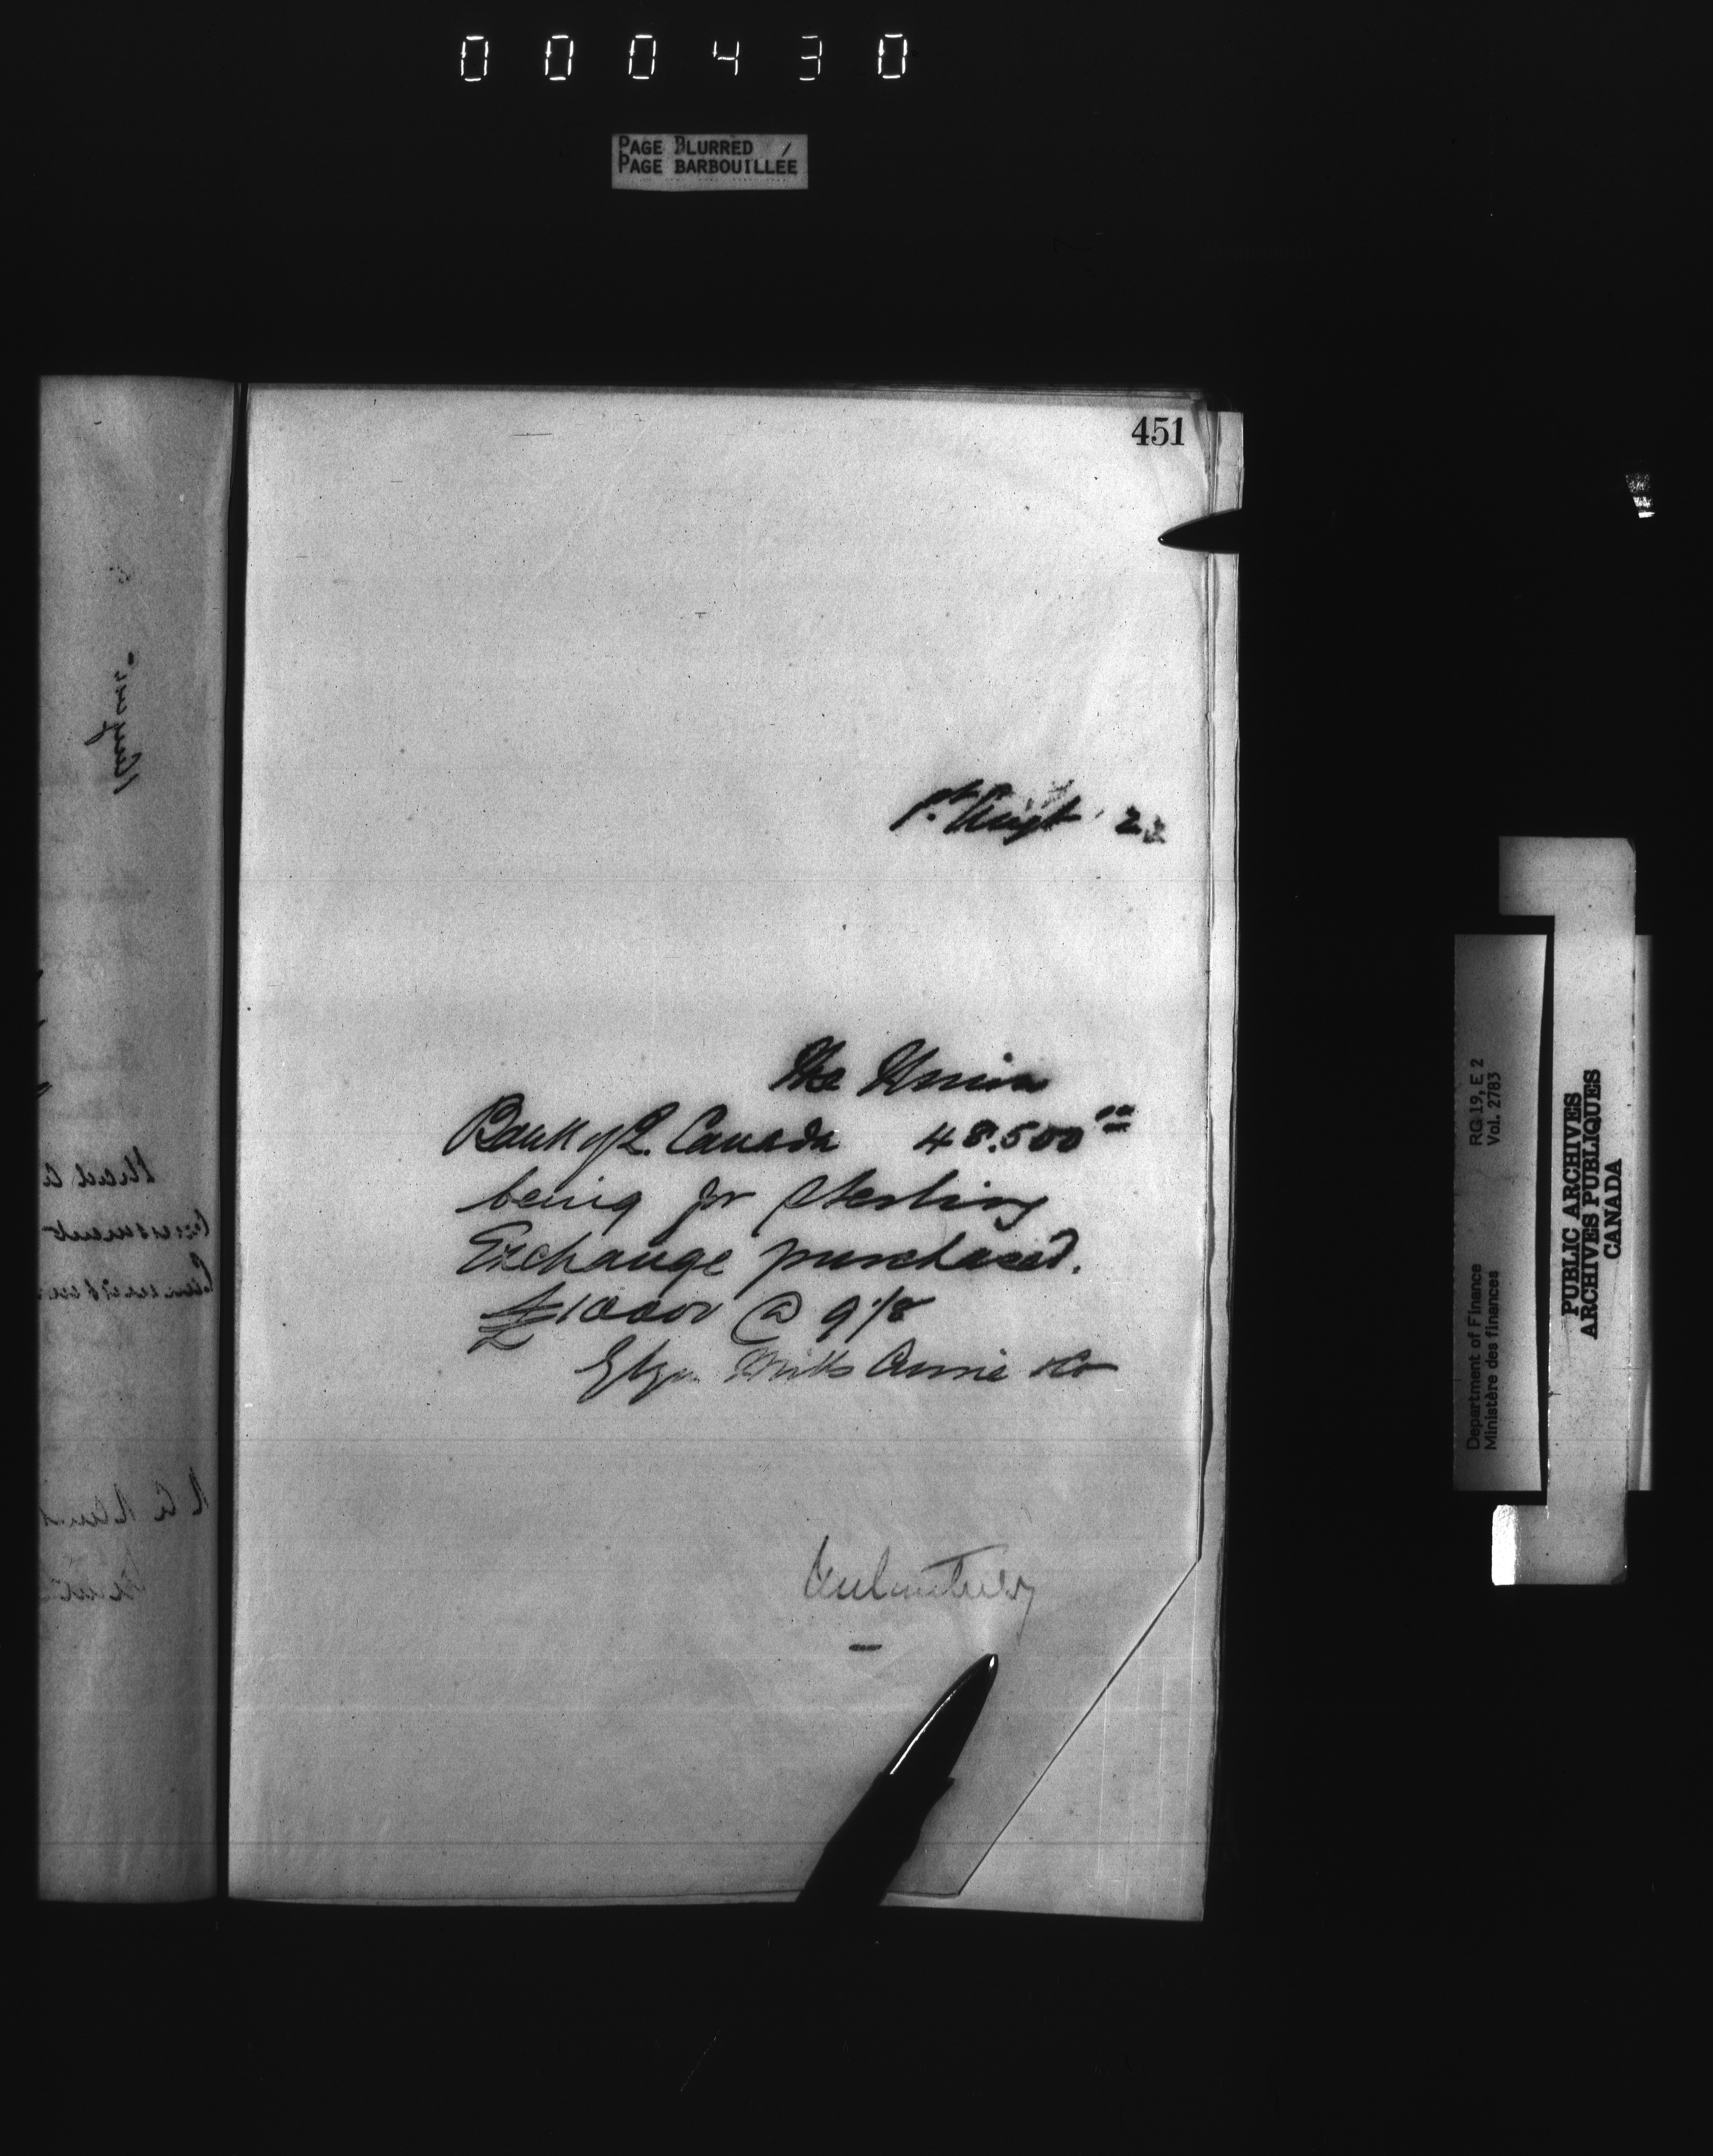 000430
PAGE BLURRED /
PAGE BARBOUILLÉE
451
1st Augt 22
The Union
Bank of L. Canada 48.500 00
being for Sterling
Exchange purchased.
£10000 @ 9 1/8
Glyn Mills Currie & Co
RG 19, E 2
Vol. 2783
Department of Finance
Ministère des finances
PUBLIC ARCHIVES
ARCHIVES PUBLIQUES
CANADA